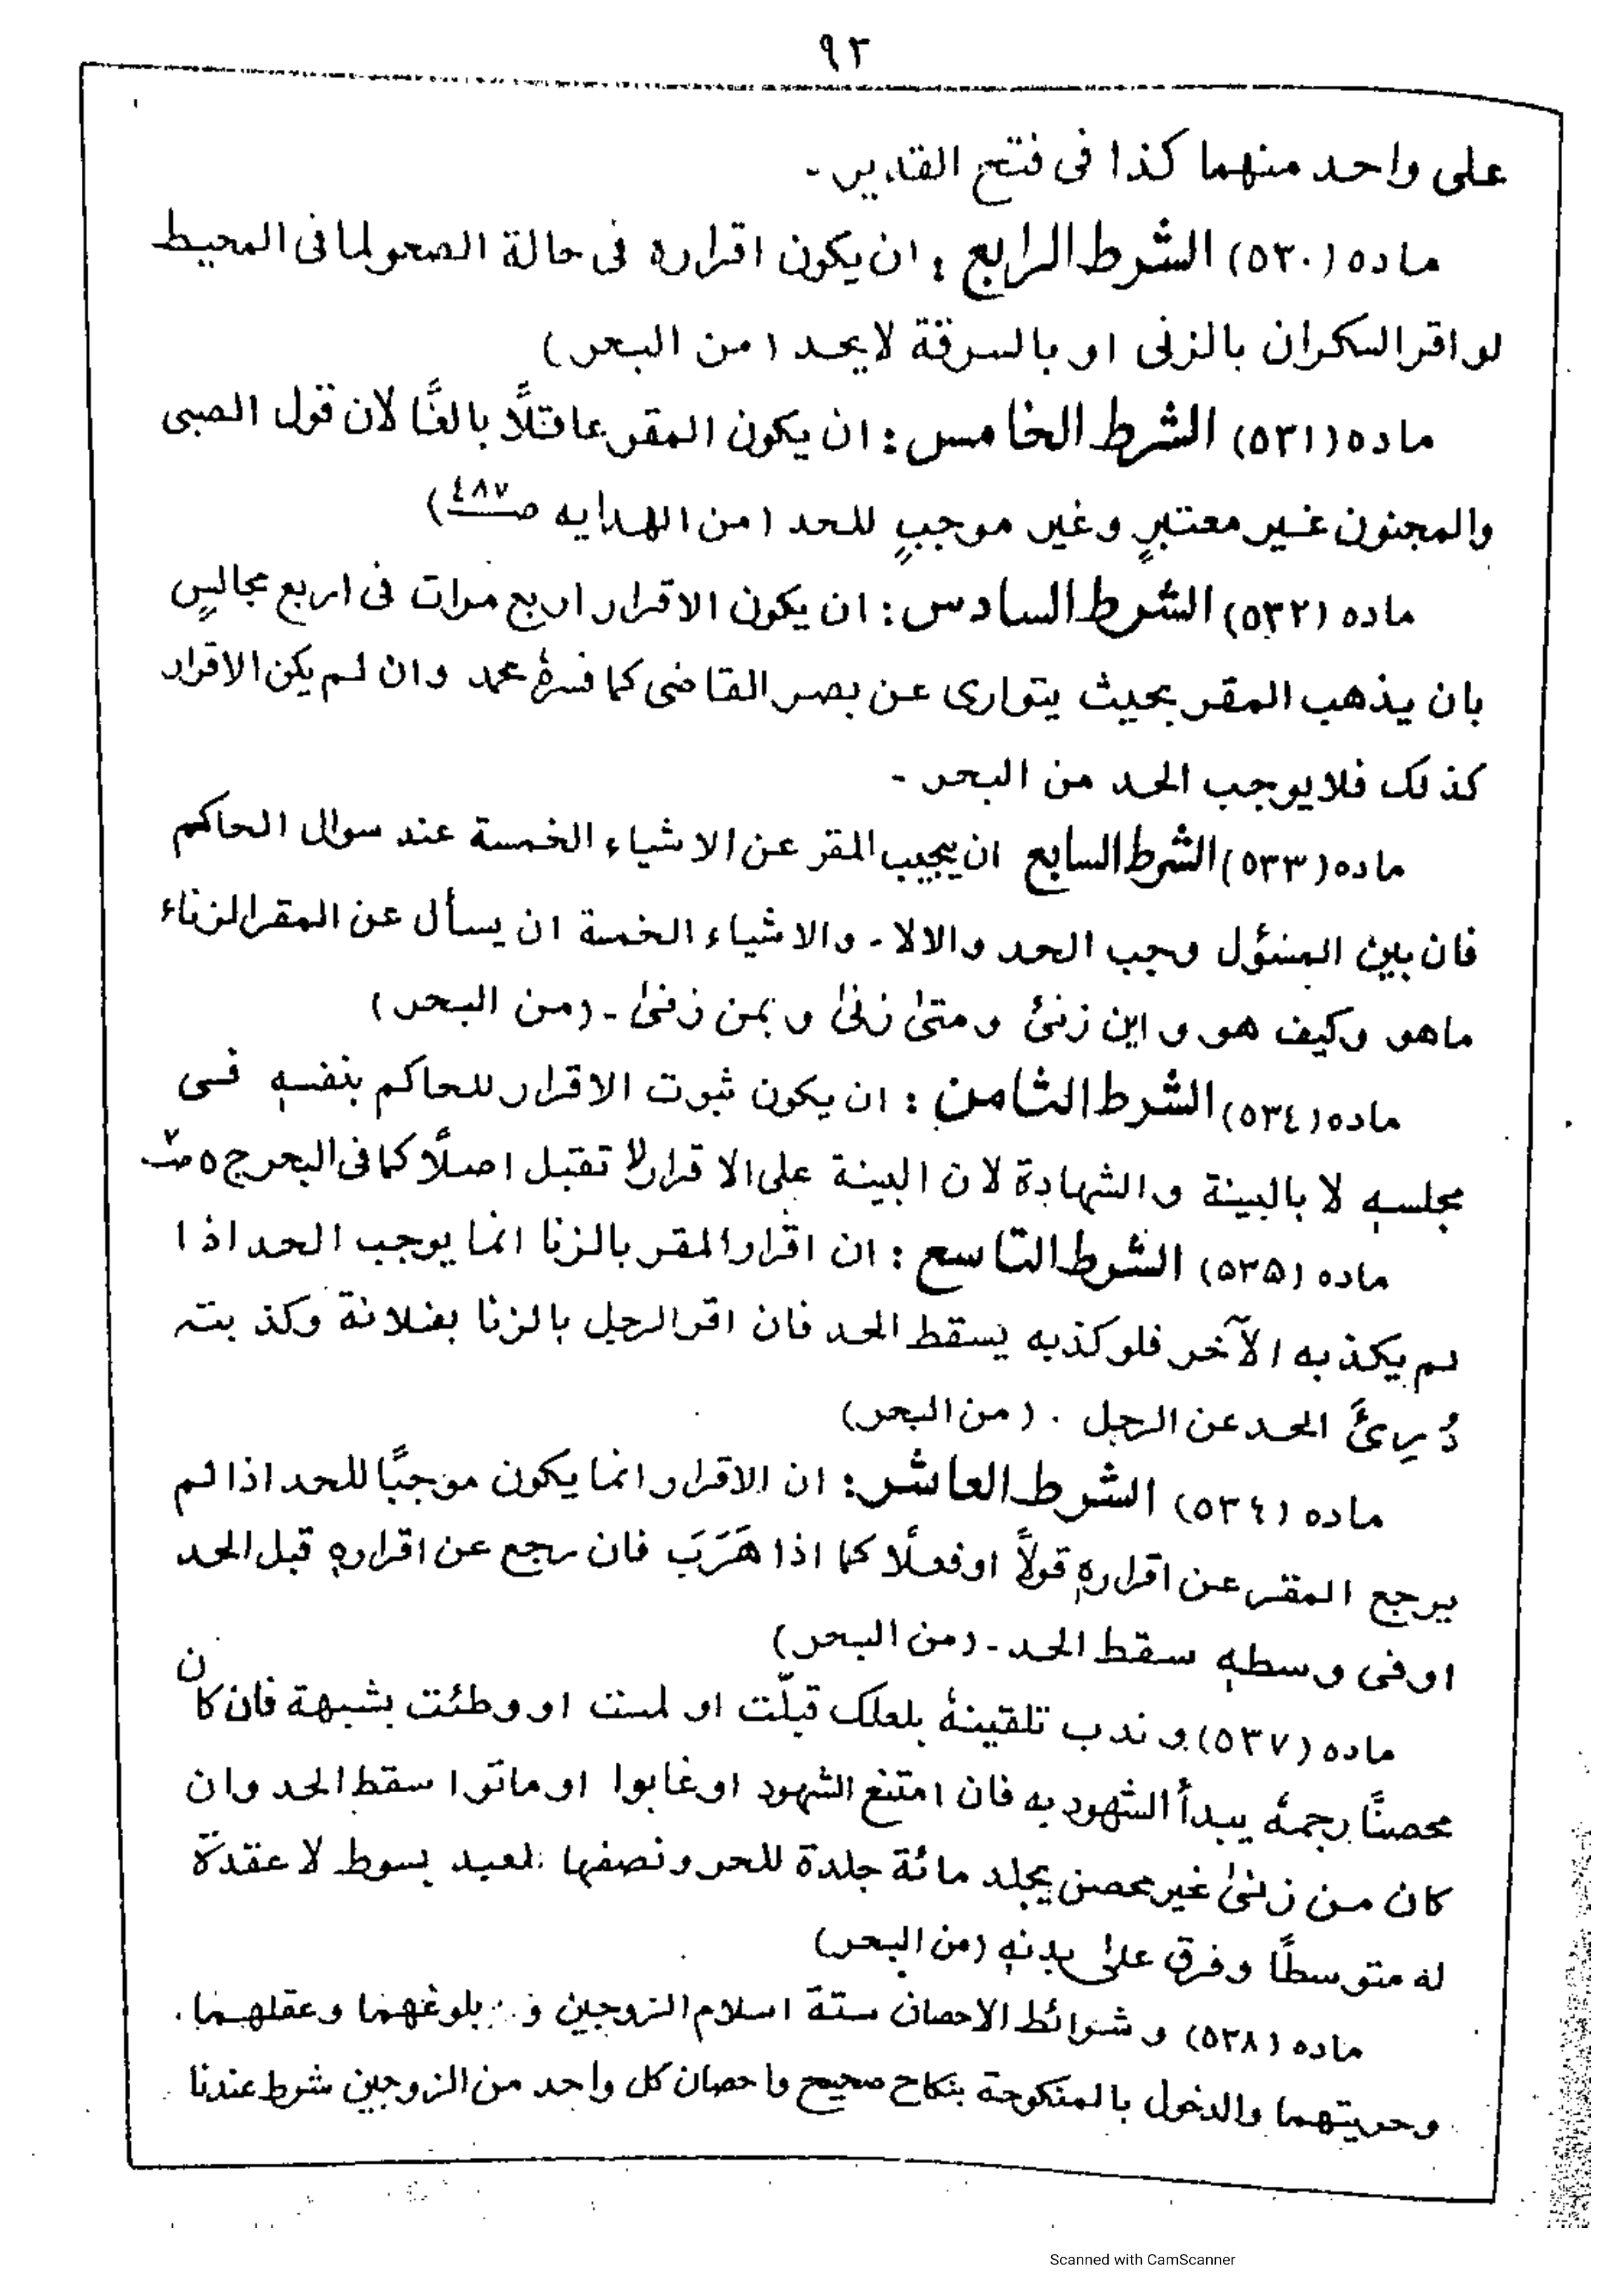 ٩٣
على واحد منهما كذا فى فتح القدير -
ماده (٥٣٠) الشرط الرابع : ان يكون اقراره فى حالة الصحو لما فى المحيط
لو اقر السكران بالزنى او بالسرقة لا يحد (من البحر)
ماده (٥٣١) الشرط الخامس : ان يكون المقر عاقلًا بالغًا لان قول الصبى
والمجنون غير معتبرٍ وغير موجبٍ للحد (من الهدايه صـ٤٨٧)
ماده (٥٣٢) الشرط السادس : ان يكون الاقرار اربع مرات فى اربع مجالسٍ
بان يذهب المقر بحيث يتوارى عن بصر القاضى كما فسرهٗ محمد وان لم يكن الاقرار
كذلك فلا يوجب الحد من البحر -
ماده (٥٣٣) الشرط السابع ان يجيب المقر عن الاشياء الخمسة عند سوال الحاكم
فان بين المسئول وجب الحد والا لا - والاشياء الخمسة ان يسأل عن المقر الزناء
ماهو وكيف هو و اين زنىٰ ومتىٰ زنىٰ و بمن زنىٰ - (من البحر)
ماده (٥٣٤) الشرط الثامن : ان يكون ثبوت الاقرار للحاكم بنفسهٖ فى
مجلسهٖ لا بالبينة والشهادة لان البينة على الاقرار لا تقبل اصلًا كما فى البحر ج ٥ صـ٧
ماده (٥٣٥) الشرط التاسع : ان اقرار المقر بالزنا انما يوجب الحد اذا
لم يكذبه الآخر فلو كذبه يسقط الحد فان اقر الرجل بالزنا بفلانة وكذبته
دُرِئَ الحد عن الرجل . (من البحر)
ماده (٥٣٦) الشرط العاشر : ان الاقرار انما يكون موجبًا للحد اذا لم
يرجع المقر عن اقرارهٖ قولًا اوفعلًا كما اذا هَرَبَ فان رجع عن اقرارهٖ قبل الحد
اوفى وسطهٖ سقط الحد - (من البحر)
ماده (٥٣٧) و ندب تلقينهٗ بلعلك قبّلت او لمست او وطئت بشبهة فان كان
محصنًا رجمهٗ يبدأ الشهود به فان امتنع الشهود اوغابوا اوماتوا سقط الحد وان
كان من زنىٰ غير محصن يجلد مائة جلدة للحر ونصفها لعبد بسوط لا عقدة
له متوسطًا وفرق علىٰ بدنهٖ (من البحر)
ماده (٥٣٨) و شرائط الاحصان ستة اسلام الزوجين و بلوغهما وعقلهما
وحريتهما والدخول بالمنكوحة بنكاح صحيح واحصان كل واحد من الزوجين شرط عندنا
Scanned with CamScanner